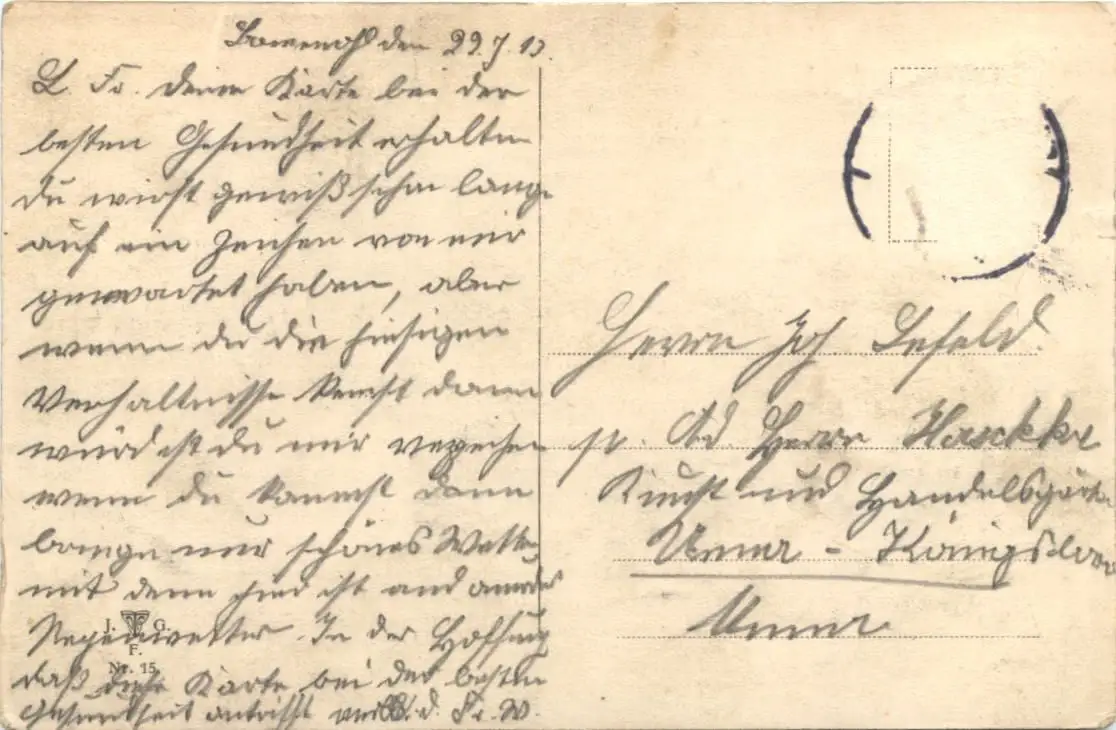 den 29.7.13.
L. Fr. Deine Karte bei der
besten Gesundheit erhalten
du wirst gewiß schon lange
auf ein Zeichen von mir
gewartet haben, aber
wenn du die hiesigen
Verhältnisse kennst dann
würdest du mir verzeihen
wenn du kannst dann
bringe nur schönes Wetter
mit denn hier ist
Regenwetter. In der Hoffnung
daß diese Karte bei der besten
Gesundheit antrifft verbl. d. Fr. W.
J. G.
F.
Nr. 15
Herrn Joh. Lefeld
p. Ad. Herrn
Kunst und Handelsgärt.
Unna - Königsborn
Unna